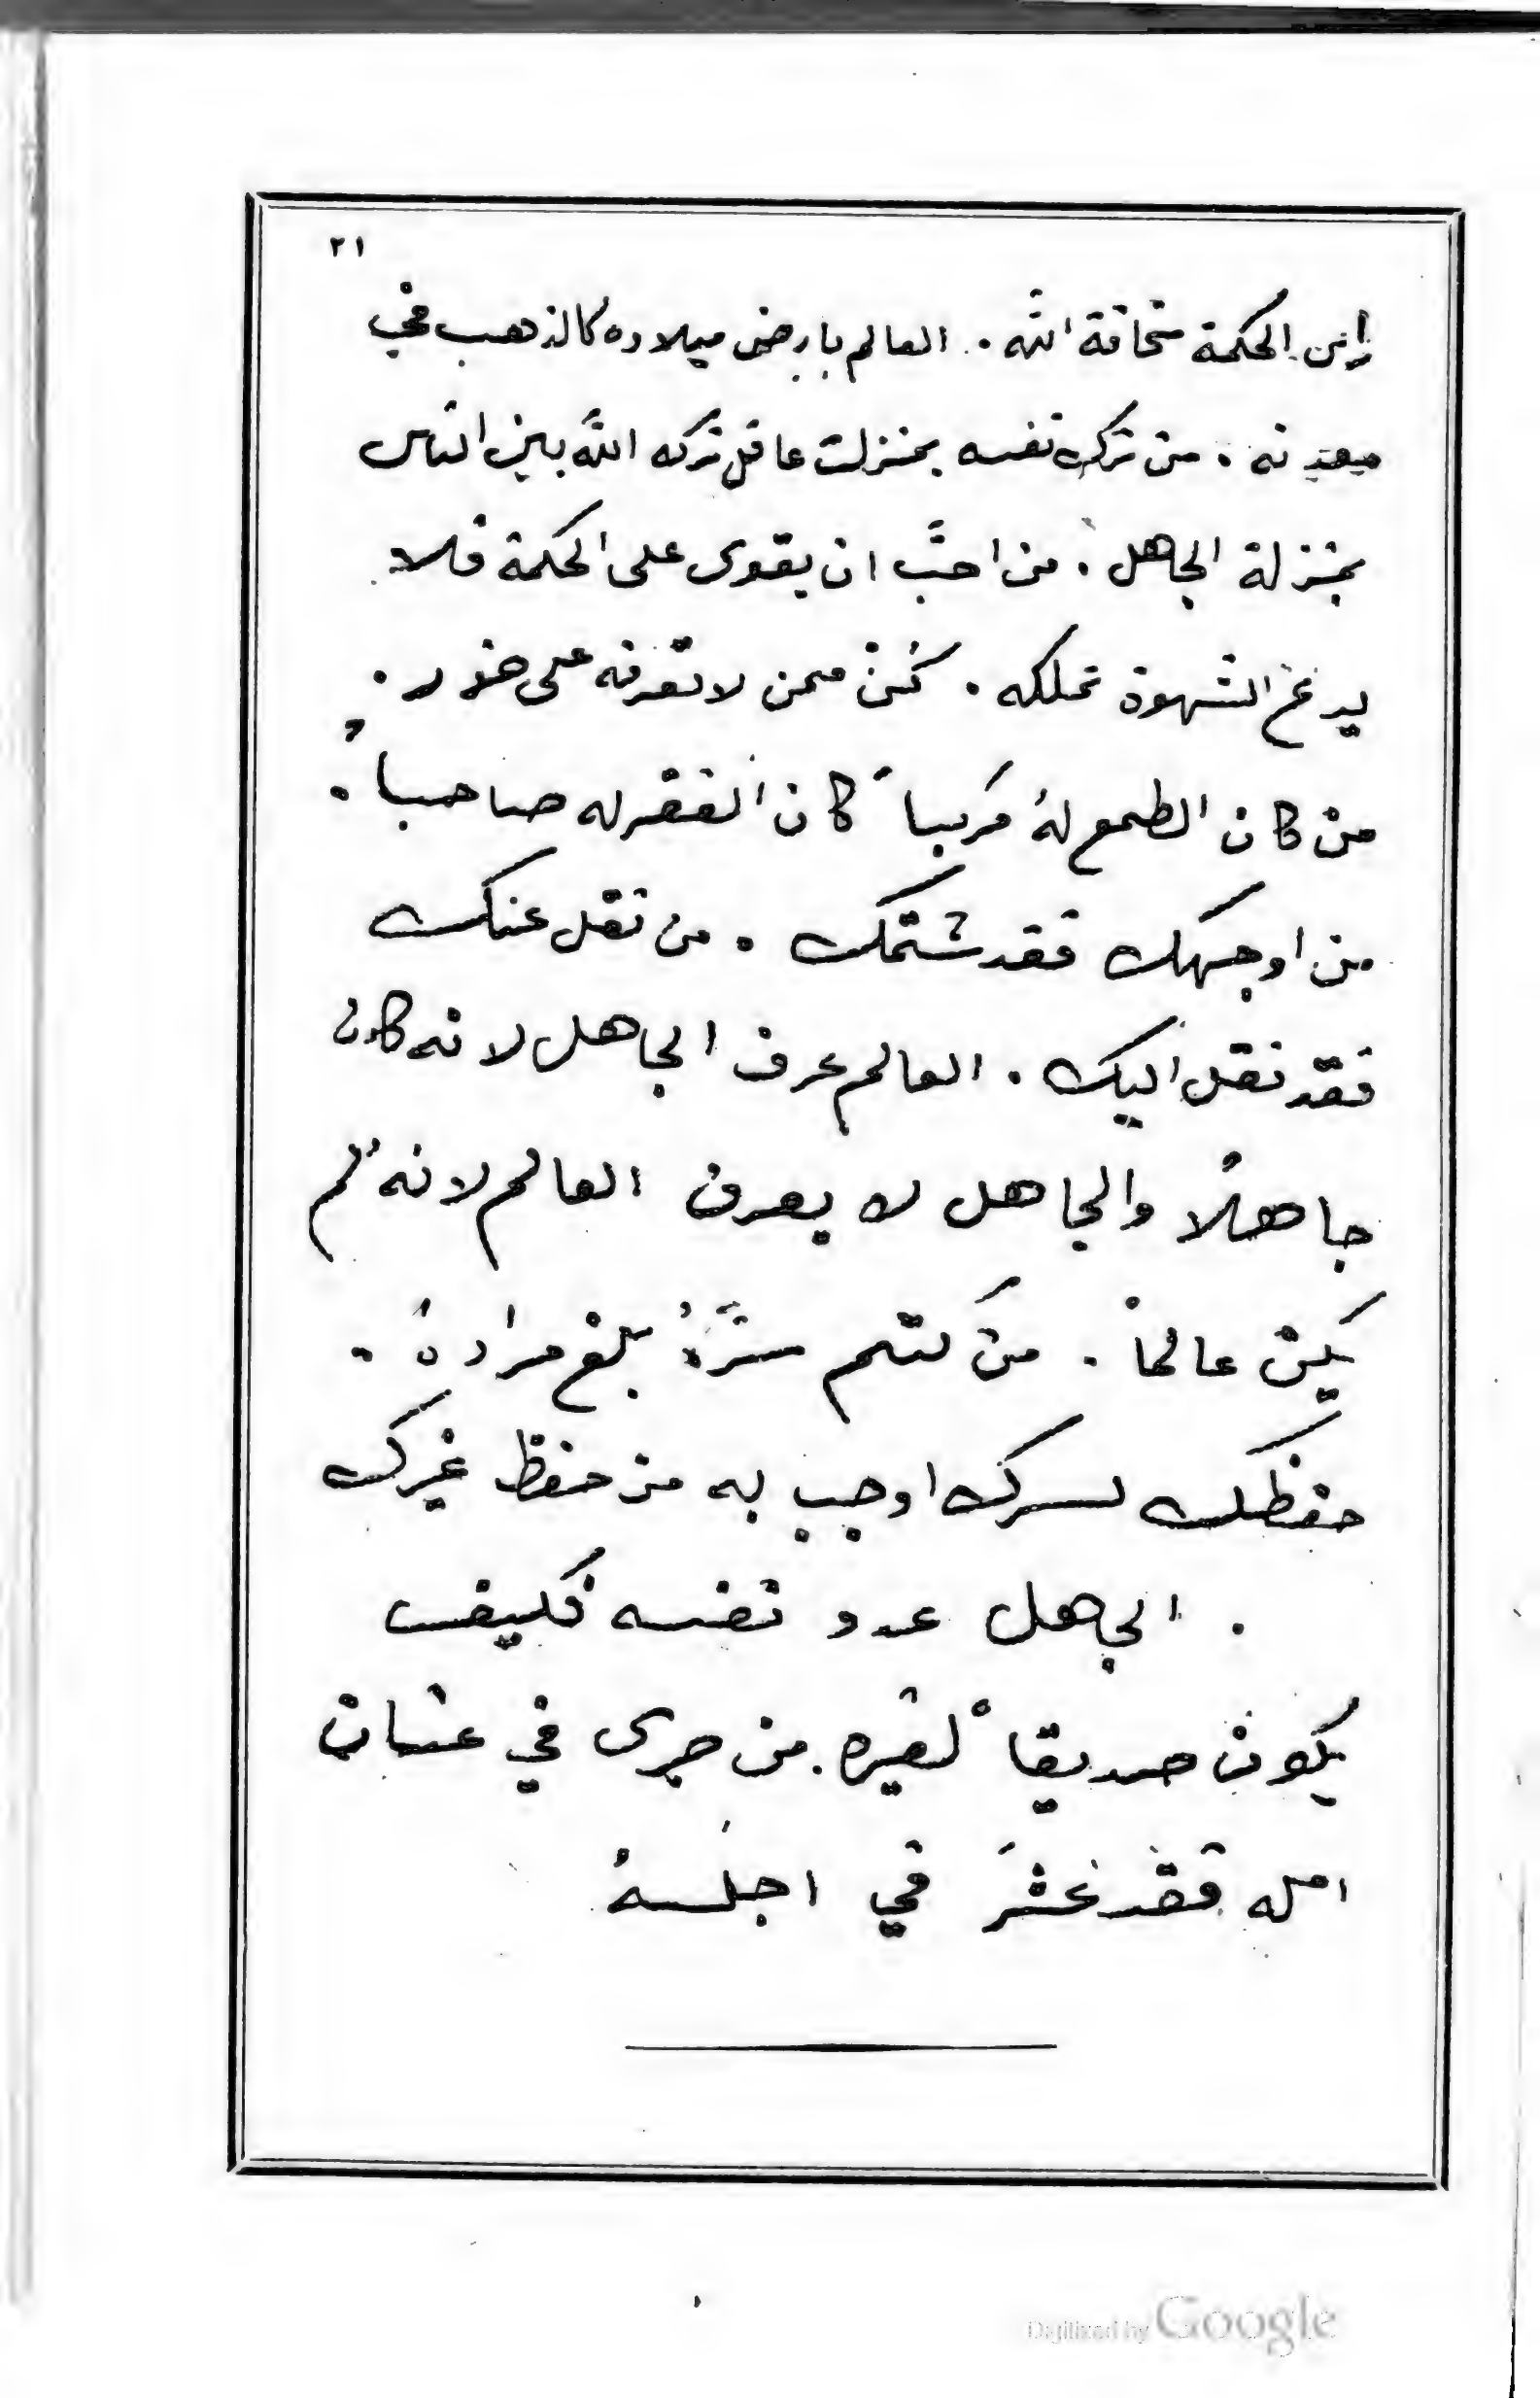 ٢١
راس الحكمة مخافة الله . العالم بارض ميلاده كالذهب في
معدنه . من ترك نفسه بمنزلت عاقل تركه الله بين الناس
بمنزلة الجاهل . من احبَّ ان يقوى على الحكمة فلا
يدع الشهوة تملكه . كُنْ ممن لا تعرفه على حذر .
من كان الطمع لهُ مركباً كان الفقر له صاحباً .
من اوجهك فقد شتمك . من نقل عنك
فقد نقل اليك . العالم عرف الجاهل لانه كان
جاهلًا والجاهل لا يعرف العالم لانهُ لم
يكن عالماً . من كتم سرَّهُ بلغ مرادهُ .
حفظك لسرك اوجب به من حفظ غيرك
. الجهل عدو نفسه فكيف
يكون صديقاً لغيره . من جرى في عنان
امله فقد عثرَ في اجلسهُ
Digitized by Google